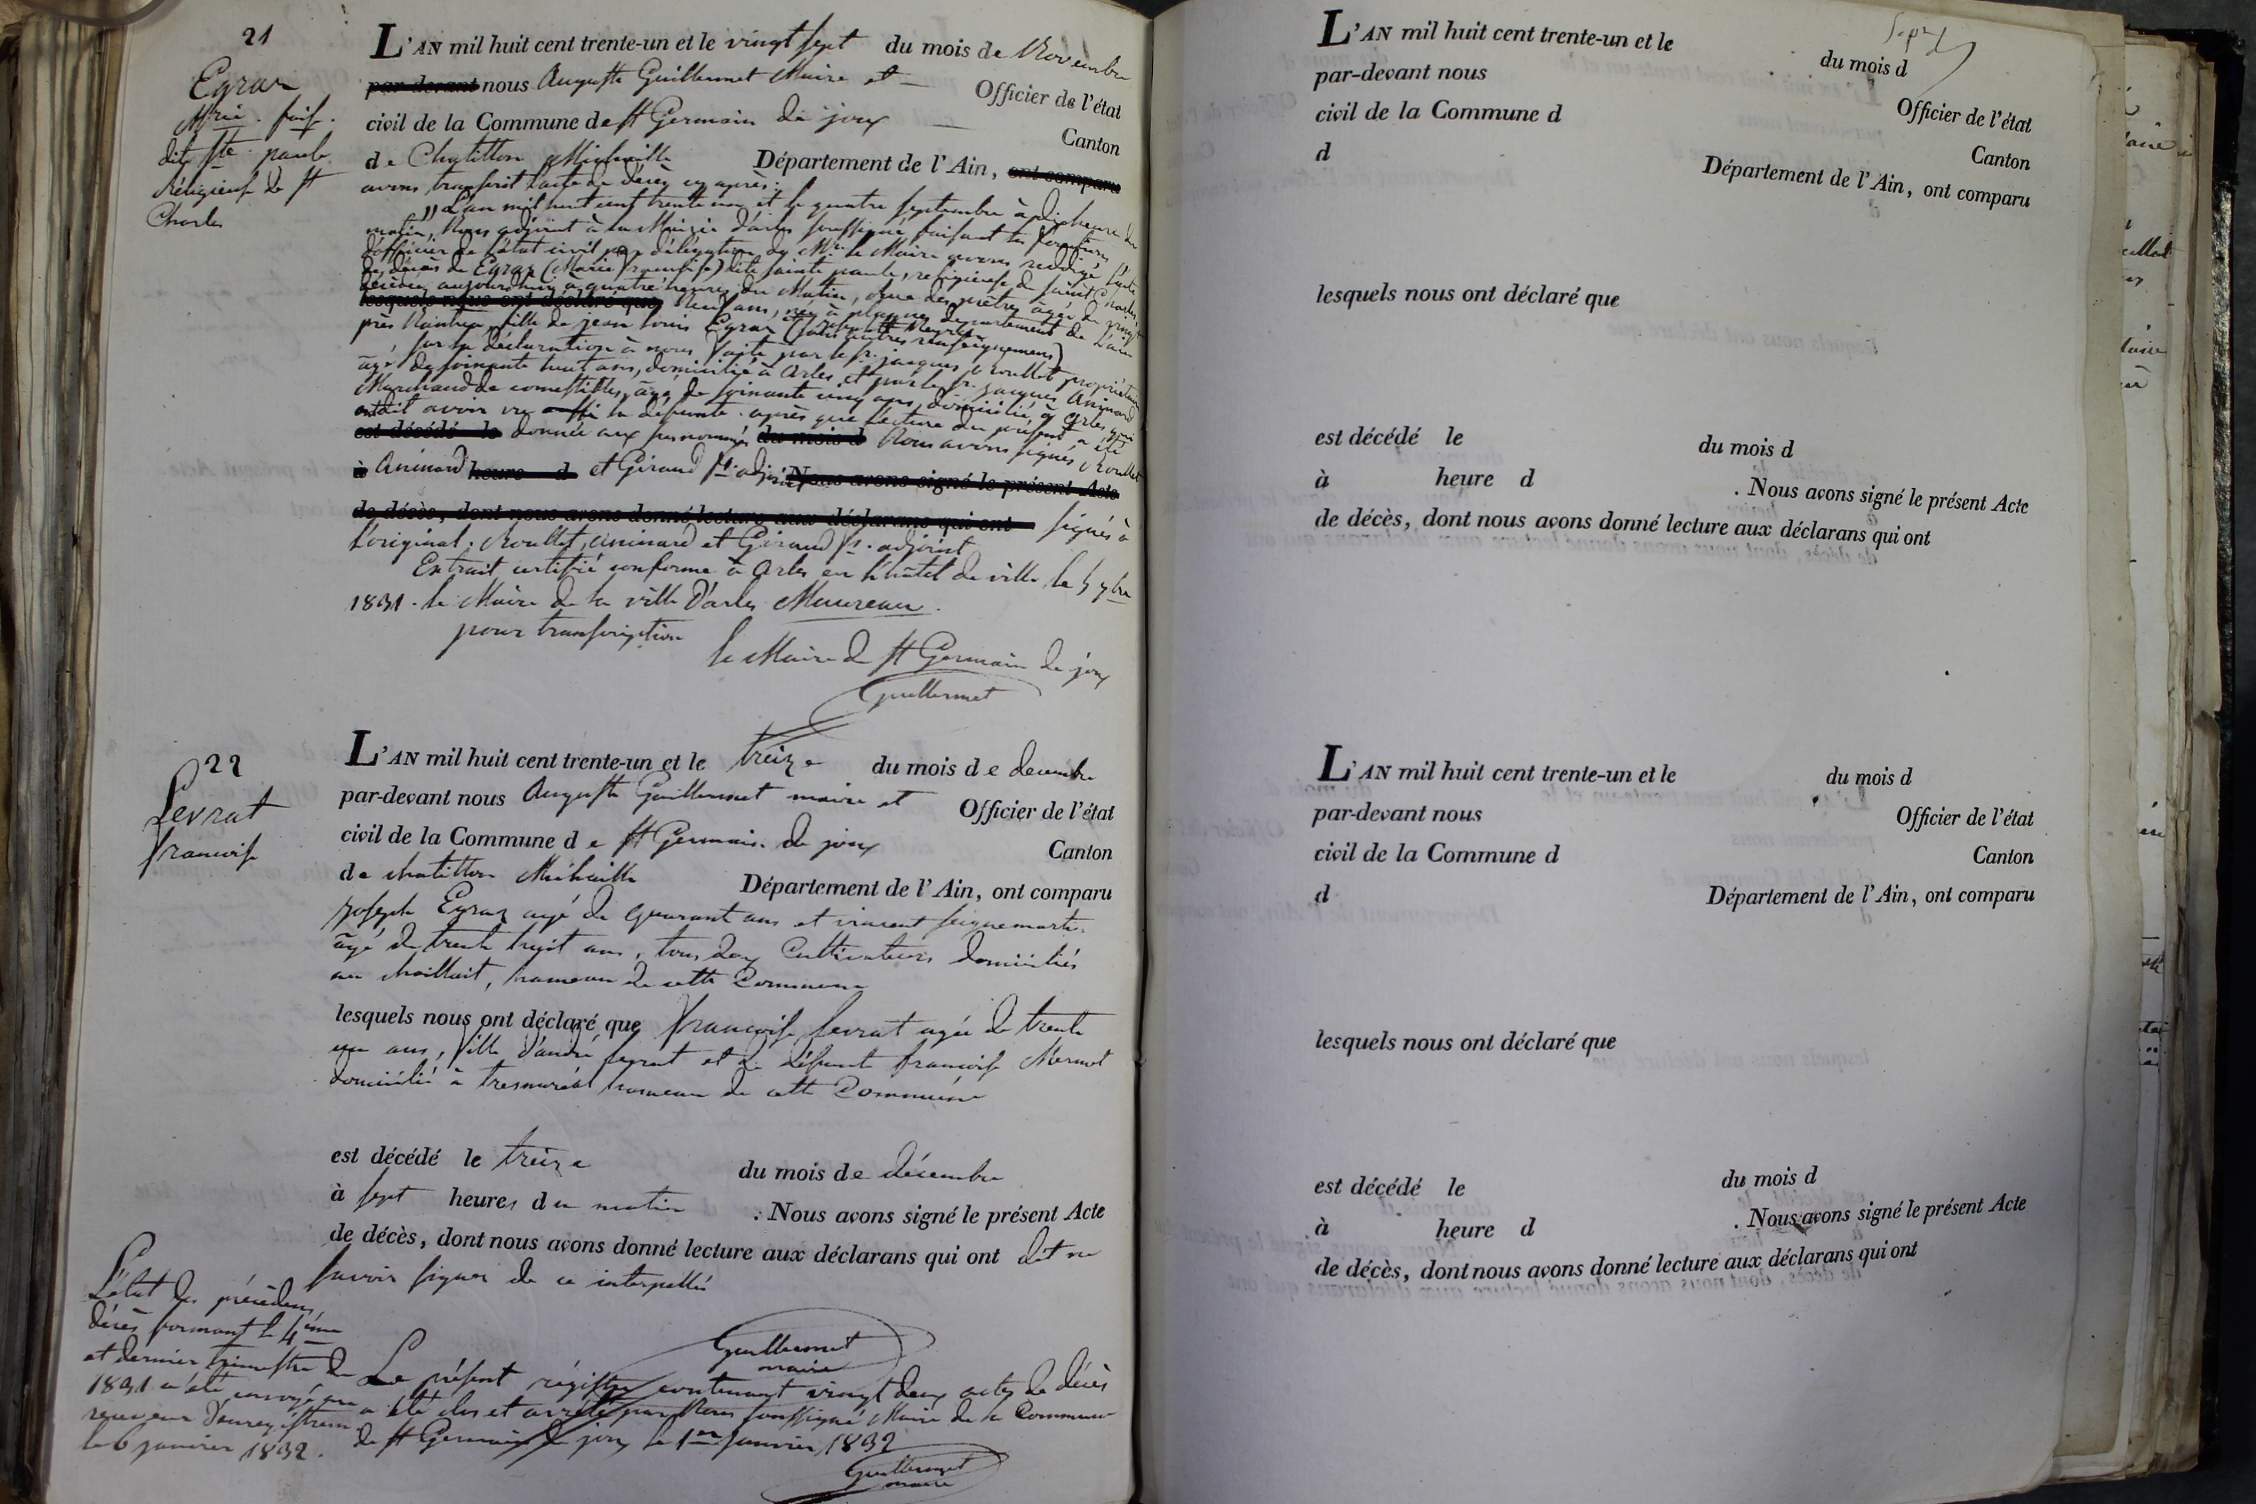 21
Egraz
Mrie. fois.
dite Ste. paule
réligieuse de St
Charles
L'AN mil huit cent trente-un et le vingt sept du mois de Novembre
par-devant nous Auguste Guillermet Maire et Officier de l'état
civil de la Commune de St Germain de joux Canton
de Chatillon Michaille Département de l'Ain, ont comparu
avons transcrit l'acte de décès cy après:
"L'an mil huit cent trente un et le quatre septembre à dix heures du
matin, Nous adjoint à la Mairie d'arles soussigné faisant les fonctions
d'officier de l'état civil par délégation de Mr. le Maire avons rédigé l'acte
de décès de Egraz (Marie françoise) dite sainte paule, religieuse de saint Charles,
décédée aujourd'hui à quatre heures du Matin, âgée de vingt
lesquels nous ont déclaré que Neuf ans, née à département de l'ain
près Nantua, fille de jean louis Egraz (sans autres renseignemens)
sur la déclaration à nous faite par le sr. jacques Roullet propriétaire
âgé de soixante huit ans, domicilié à Arles et par le sr. jacques Aninard
Marchand de comestibles, âgé de soixante cinq ans, domicilié à Arles qui
ont dit avoir vu la défunte. après que lecture du présent a été
est décédé le donnée aux susnommés du mois d Nous avons signés Roullet
à Aninard heure d et Giraud fs. adjoint Nous avons signé le présent Acte
de décès, dont nous avons donné lecture aux déclarans qui ont signés à
l'original. Roullet, aninard et Giraud fs. adjoint
Extrait certifié conforme à Arles en l'hôtel de ville le 5 7bre
1831. le Maire de la ville d'arles
pour transcription
le Maire de St Germain de joux
Guillermet
22
Levrat
francoise
L'AN mil huit cent trente-un et le treize du mois de decembre
par-devant nous Auguste Guillermet maire et Officier de l'état
civil de la Commune de St Germain de joux Canton
de chatillon Michaille Département de l'Ain, ont comparu
joseph Egraz agé de quarant ans et vincent seignemartin
âgé de trente huit ans, tous deux Cultivateurs domiciliés
au chaillait, hameau de cette Commune
lesquels nous ont déclaré que francoise levrat agée de trente
un ans, fille d'andré levrat et de défunte francoise Mermet
domicilié à tresmurat hameau de cette Commune
est décédé le treize du mois de décembre
à sept heures du matin . Nous avons signé le présent Acte
de décès, dont nous avons donné lecture aux déclarans qui ont dit ne
savoir signer de ce interpellés
Guillermet
maire
L'état des précédens
décès formant le 4eme
et dernier trimestre de
1831 a été envoyé au
receveur d'enregistrem
le 6 janvier 1832.
Le présent régistre contenant vingt deux actes de décès
a été clos et arrêté par Nous soussigné Maire de la Commune
de St Germain de joux le 1er janvier 1832
Guillermet
maire
L'AN mil huit cent trente-un et le du mois d
par-devant nous Officier de l'état
civil de la Commune d Canton
d Département de l'Ain, ont comparu
lesquels nous ont déclaré que
est décédé le du mois d
à heure d . Nous avons signé le présent Acte
de décès, dont nous avons donné lecture aux déclarans qui ont
L'AN mil huit cent trente-un et le du mois d
par-devant nous Officier de l'état
civil de la Commune d Canton
d Département de l'Ain, ont comparu
lesquels nous ont déclaré que
est décédé le du mois d
à heure d . Nous avons signé le présent Acte
de décès, dont nous avons donné lecture aux déclarans qui ont